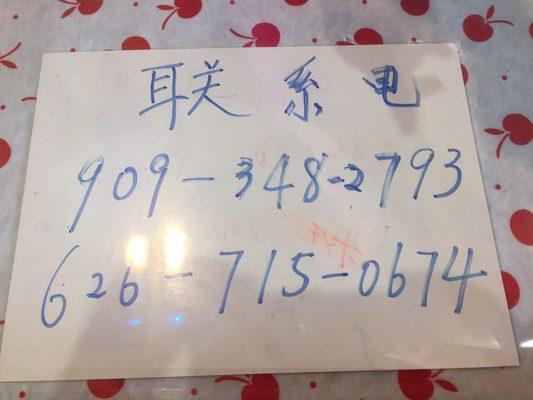 联系电
909-348-2793
626-715-0674